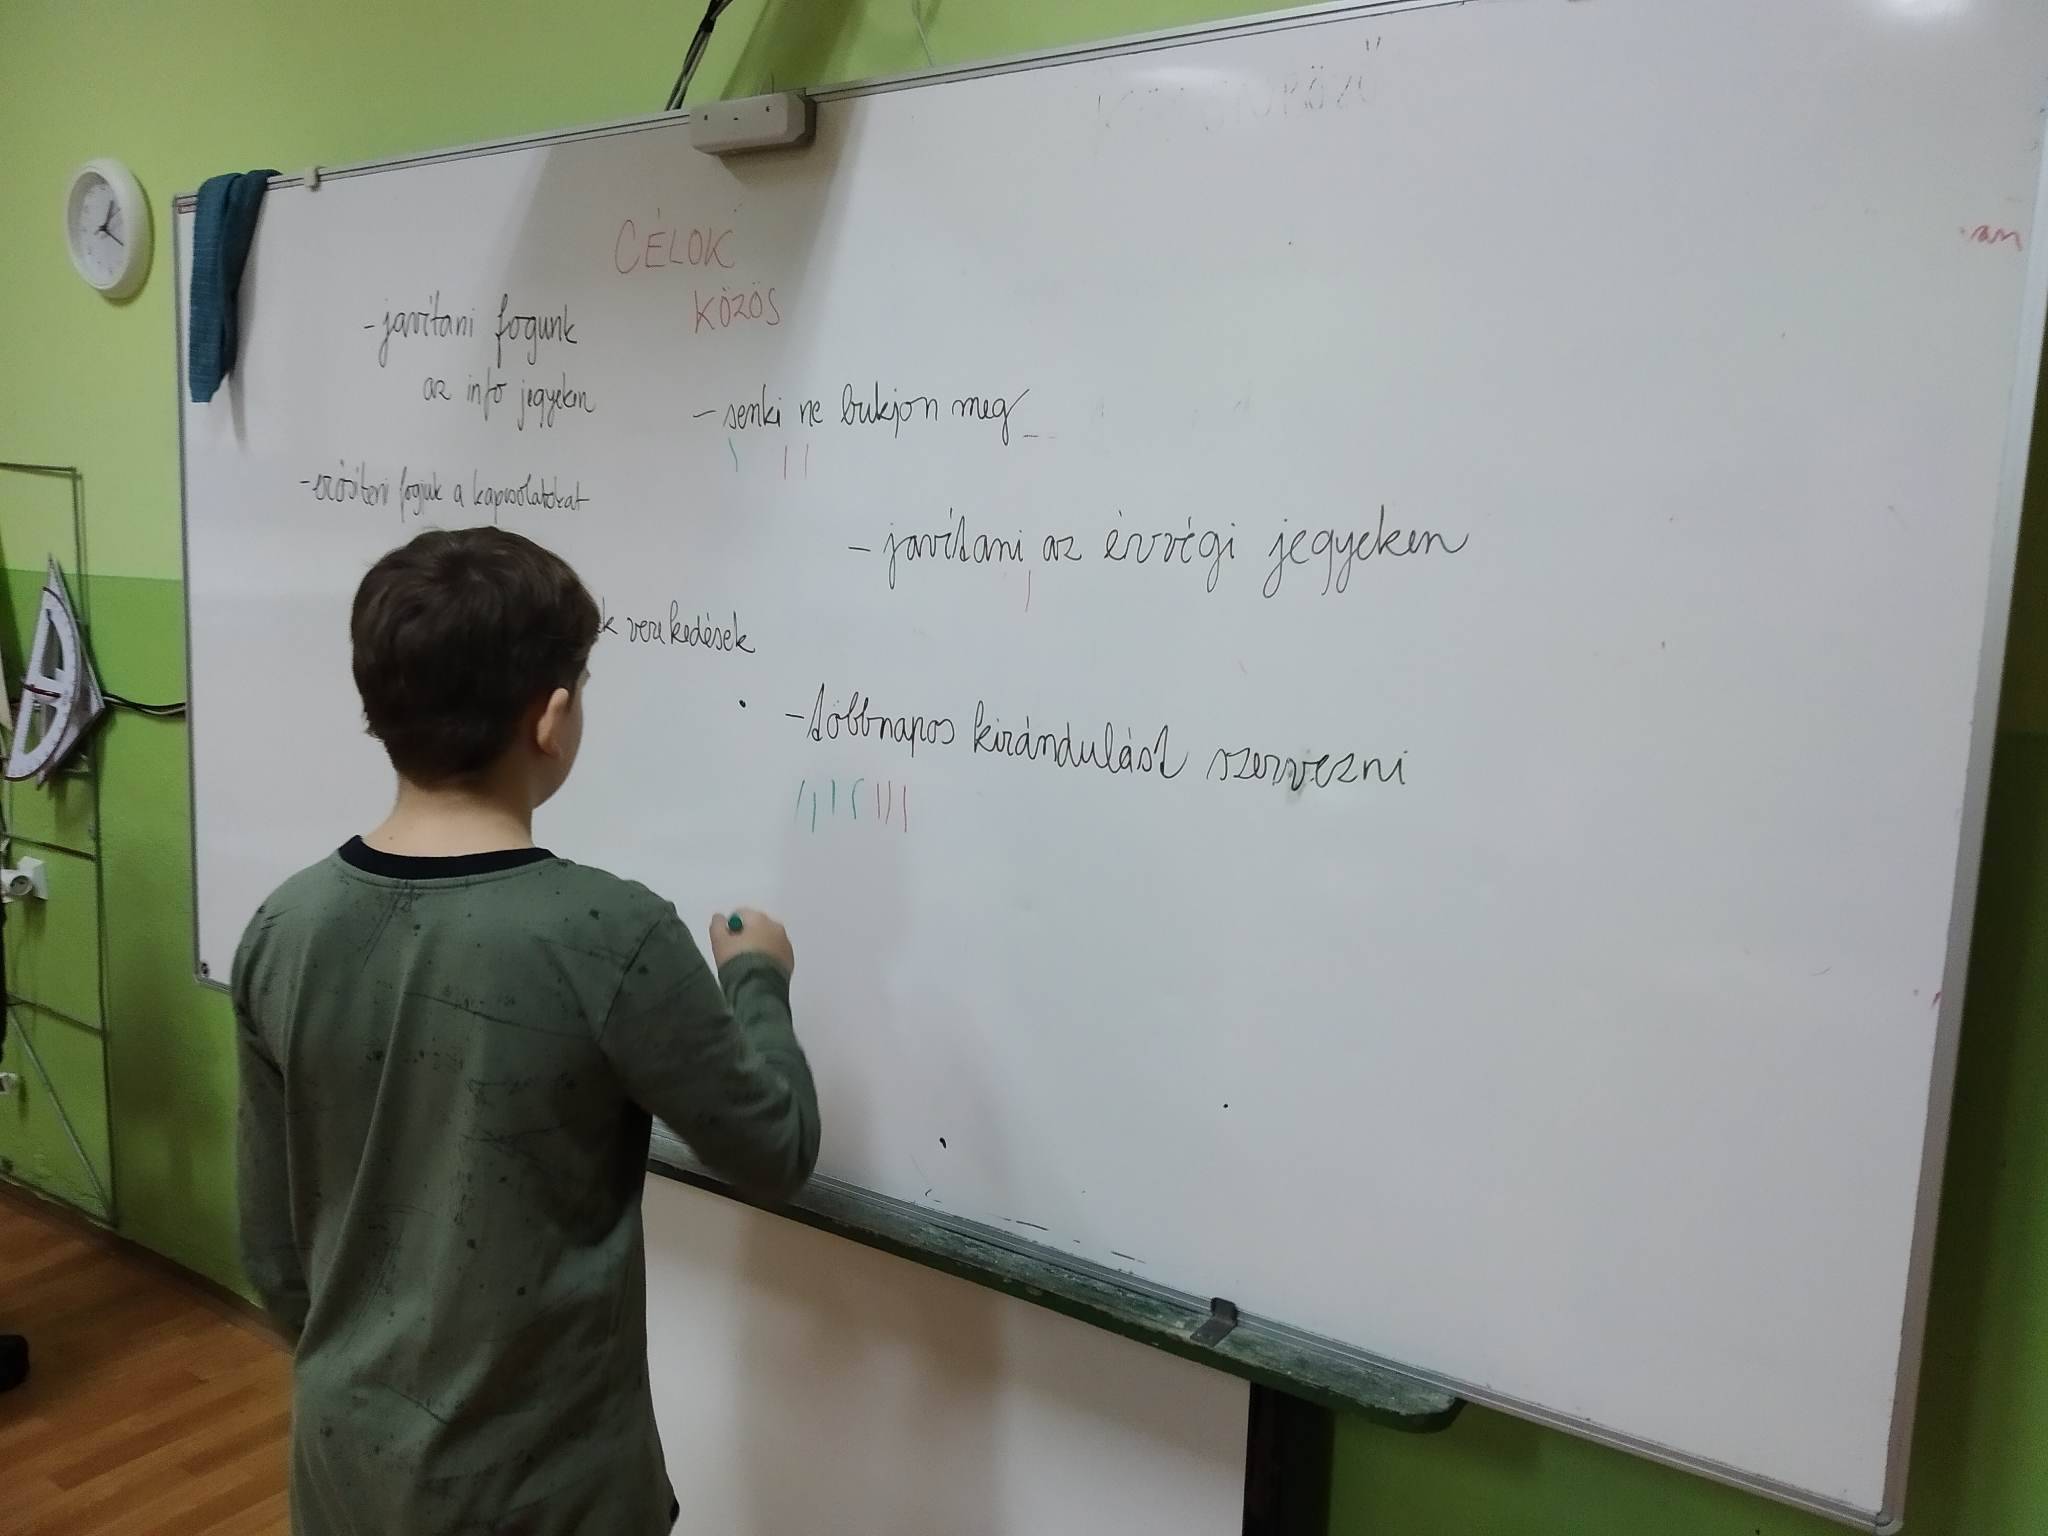 CÉLOK
KÖZÖS
- javítani fogunk
az info jegyeken
- erősíteni fogjuk a kapcsolatokat
verekedések
- senki ne bukjon meg
- javítani az évvégi jegyeken
- többnapos kirándulást szervezni